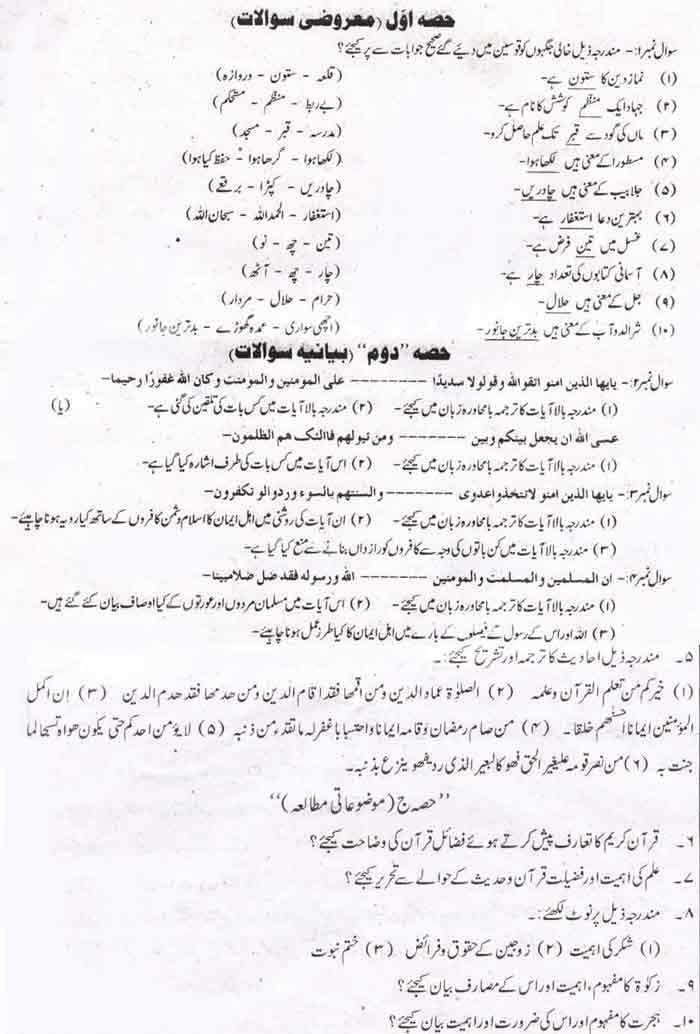 حصہ اوّل (معروضی سوالات)
سوال نمبر ۱:- مندرجہ ذیل خالی جگہوں کو قوسین میں دیئے گئے صحیح جوابات سے پر کیجئے؟
(۱) نماز دین کا ستون ہے- (قلعہ - ستون - دروازہ)
(۲) جہاد ایک منظم کوشش کا نام ہے- (بے ربط - منظم - مستحکم)
(۳) ماں کی گود سے قبر تک علم حاصل کرو- (مدرسہ - قبر - مسجد)
(۴) مسطورا کے معنی ہیں لکھا ہوا- (لکھا ہوا - گرھا ہوا - حفظ کیا ہوا)
(۵) جلابیب کے معنی ہیں چادریں- (چادریں - کپڑا - برقعے)
(۶) بہترین دعا استغفار ہے- (استغفار - الحمداللہ - سبحان اللہ)
(۷) غسل میں تین فرض ہے- (تین - چھ - نو)
(۸) آسمانی کتابوں کی تعداد چار ہے- (چار - چھ - آٹھ)
(۹) جل کے معنی ہیں حلال- (حرام - حلال - مردار)
(۱۰) شرالدوآب کے معنی ہیں بدترین جانور- (اچھی سواری - عمدہ گھوڑے - بدترین جانور)
حصہ "دوم" (بیانیہ سوالات)
سوال نمبر ۲:- یایھا الذین امنو اتقو اللہ وقولو لا سدیدًا -------- علی المومنین والمومنت وکان اللہ غفورًا رحیما-
(۱) مندرجہ بالا آیات کا ترجمہ با محاورہ زبان میں کیجئے- (۲) مندرجہ بالا آیات میں کس بات کی تلقین کی گئی ہے- (یا)
عسی اللہ ان یجعل بینکم وبین -------- ومن تیولھم فاالئک ھم الظلمون-
(۱) مندرجہ بالا آیات کا ترجمہ با محاورہ زبان میں کیجئے- (۲) اس آیات میں کس بات کی طرف اشارہ کیا گیا ہے-
سوال نمبر ۳:- یایھا الذین امنو لاتتخذو اعدوی -------- والسنتھم بالسوء وردوالو تکفرون-
(۱) مندرجہ بالا آیات کا ترجمہ با محاورہ زبان میں کیجئے- (۲) ان آیات کی روشنی میں اہل ایمان کا اسلام دشمن کافروں کے ساتھ کیا رویہ ہونا چاہیئے-
(۳) مندرجہ بالا آیات میں کن باتوں کی وجہ سے کافروں کو رازداں بنانے سے منع کیا گیا ہے-
سوال نمبر ۴:- ان المسلمین والمسلمت والمومنین -------- اللہ ورسولہ فقد ضل ضلامبینا-
(۱) مندرجہ بالا آیات کا ترجمہ با محاورہ زبان میں کیجئے- (۲) اس آیات میں مسلمان مردوں اور عورتوں کے کیا اوصاف بیان کئے گئے ہیں-
(۳) اللہ اور اس کے رسول کے فیصلوں کے بارے میں اہل ایمان کا کیا طرز عمل ہونا چاہیئے-
۵۔ مندرجہ ذیل احادیث کا ترجمہ اور تشریح کیجئے:۔
(۱) خیرکم من تعلم القرآن وعلمہ (۲) الصلوٰۃ عماد الدین ومن اقمھا فقد اقام الدین ومن ھدمھا فقد ھدم الدین (۳) ان اکمل
المؤمنین ایمانا احسنھم خلقا۔ (۴) من صام رمضان وقامہ ایمانا واحتسابا غفرلہ ما تقدء من ذنبہ (۵) لا یؤمن احدکم حتی یکون ھواہ تسبحا لما
جنت بہ (۶) من نصر قومہ علیٰ غیر الحق فھو کا لبعیر الذی ردیفھو ینزع بذنبہ۔
''حصہ ج (موضوعاتی مطالعہ)''
۶۔ قرآن کریم کا تعارف پیش کرتے ہوئے فضائل قرآن کی وضاحت کیجئے؟
۷۔ علم کی اہمیت اور فضیلت قرآن و حدیث کے حوالے سے تحریر کیجئے؟
۸۔ مندرجہ ذیل پر نوٹ لکھئے:۔
(۱) شکر کی اہمیت (۲) زوجین کے حقوق و فرائض (۳) ختم نبوت
۹۔ زکوٰۃ کا مفہوم، اہمیت اور اس کے مصارف بیان کیجئے؟
۱۰۔ ہجرت کا مفہوم اور اس کی ضرورت اور اہمیت بیان کیجئے؟